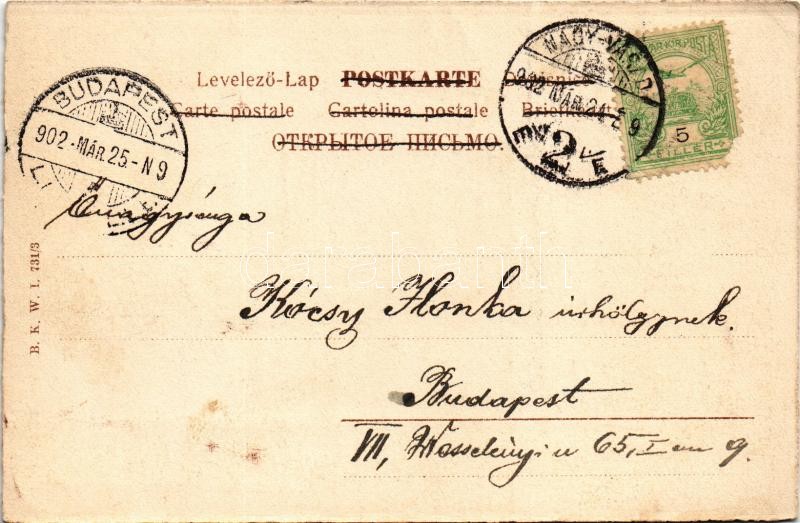 Levelező-Lap POSTKARTE
Carte postale Cartolina postale Briefkaart
ОТКРЫТОЕ ПИСЬМО.
NAGY-VÁRAD
902 MÁR. 24. E 9
2
MAGYAR KIR. POSTA
5
FILLER
BUDAPEST
902 - MÁR. 25 - N 9
Őnagysága
darabanth
Kócsy Ilonka úrhölgynek.
Budapest
VII, Wesselényi u 65, I em 9.
B. K. W. I. 731/3